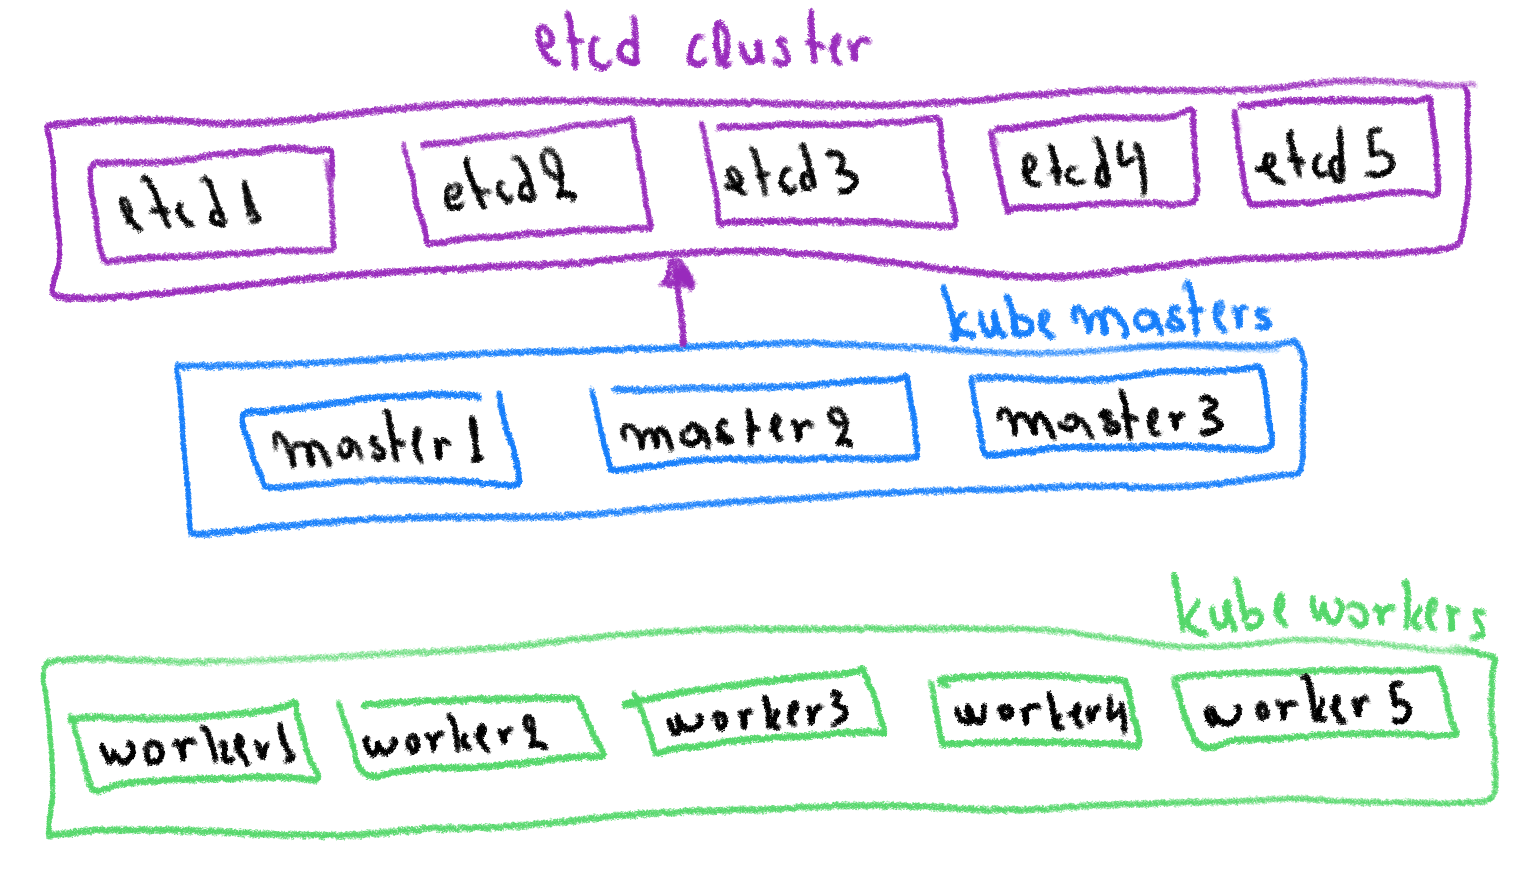 etcd cluster
etcd1 etcd2 etcd3 etcd4 etcd5
kube masters
master1 master2 master3
kube workers
worker1 worker2 worker3 worker4 worker5